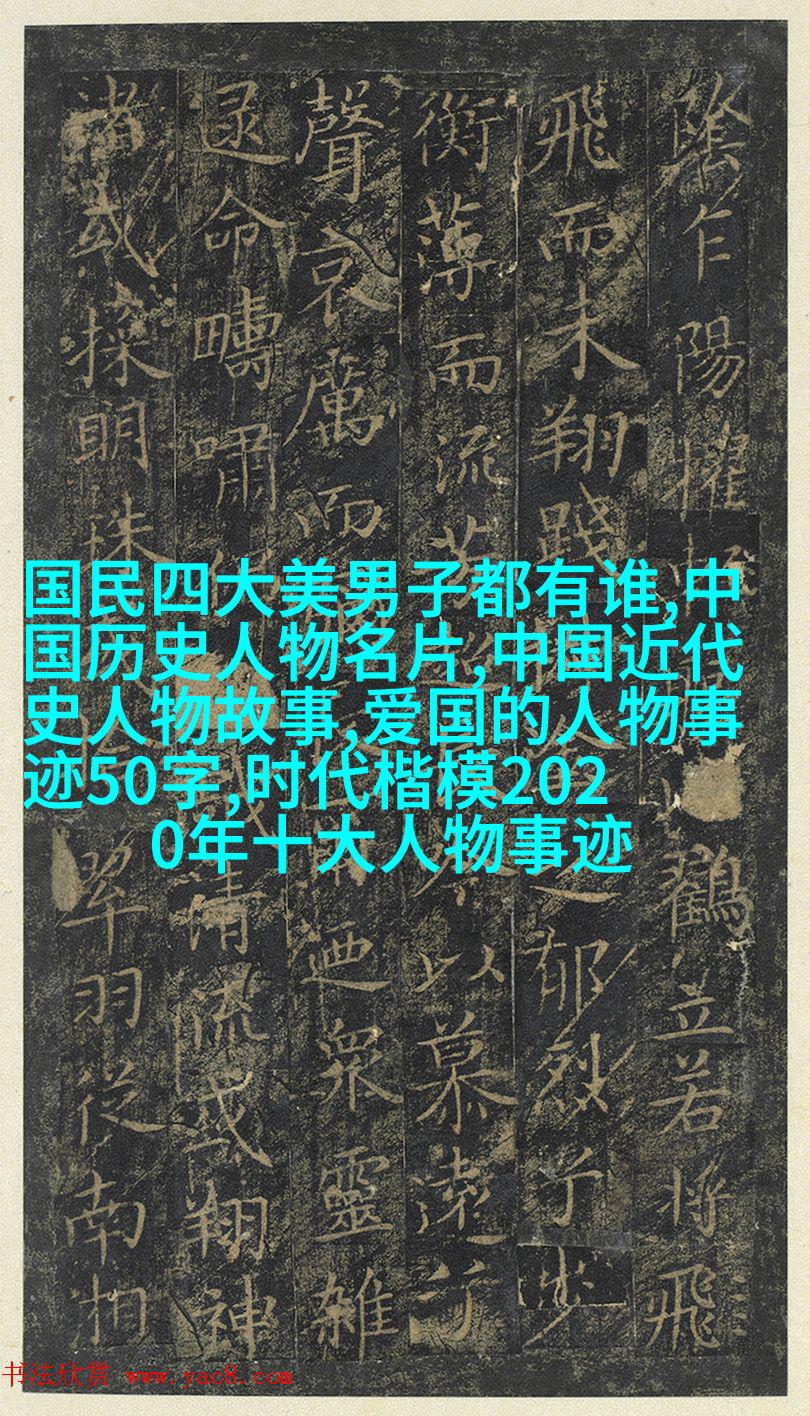 陰乍陽擢鶴立若將飛
飛而未翔踐郁烈予步
衡薄而流芳以慕遠兮
聲哀厲而迺衆靈雜
遝命疇嘯清流或翔神
渚或採明珠翠羽從南湘
国民四大美男子都有谁,中
国历史人物名片,中国近代
史人物故事,爱国的人物事
迹50字,时代楷模202
0年十大人物事迹
书法欣赏 www.yac8.com